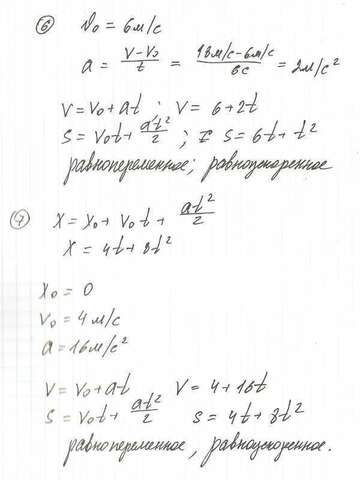 ⑥ V₀ = 6 м/с
a = (V - V₀)/t = (18 м/с - 6 м/с)/6с = 2 м/с²
V = V₀ + at ; V = 6 + 2t
S = V₀t + at²/2 ; S = 6t + t²
равнопеременное; равноускоренное
⑦ X = X₀ + V₀t + at²/2
X = 4t + 8t²
X₀ = 0
V₀ = 4 м/с
a = 16 м/с²
V = V₀ + at V = 4 + 16t
S = V₀t + at²/2 S = 4t + 8t²
равнопеременное, равноускоренное.